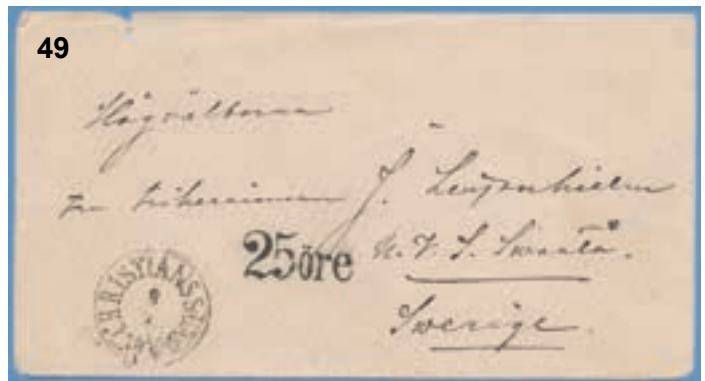 49
Högvälborna
friherrinnan J. Leijonhielm
25 öre
Sverige.
CHRISTIANSSUND
9